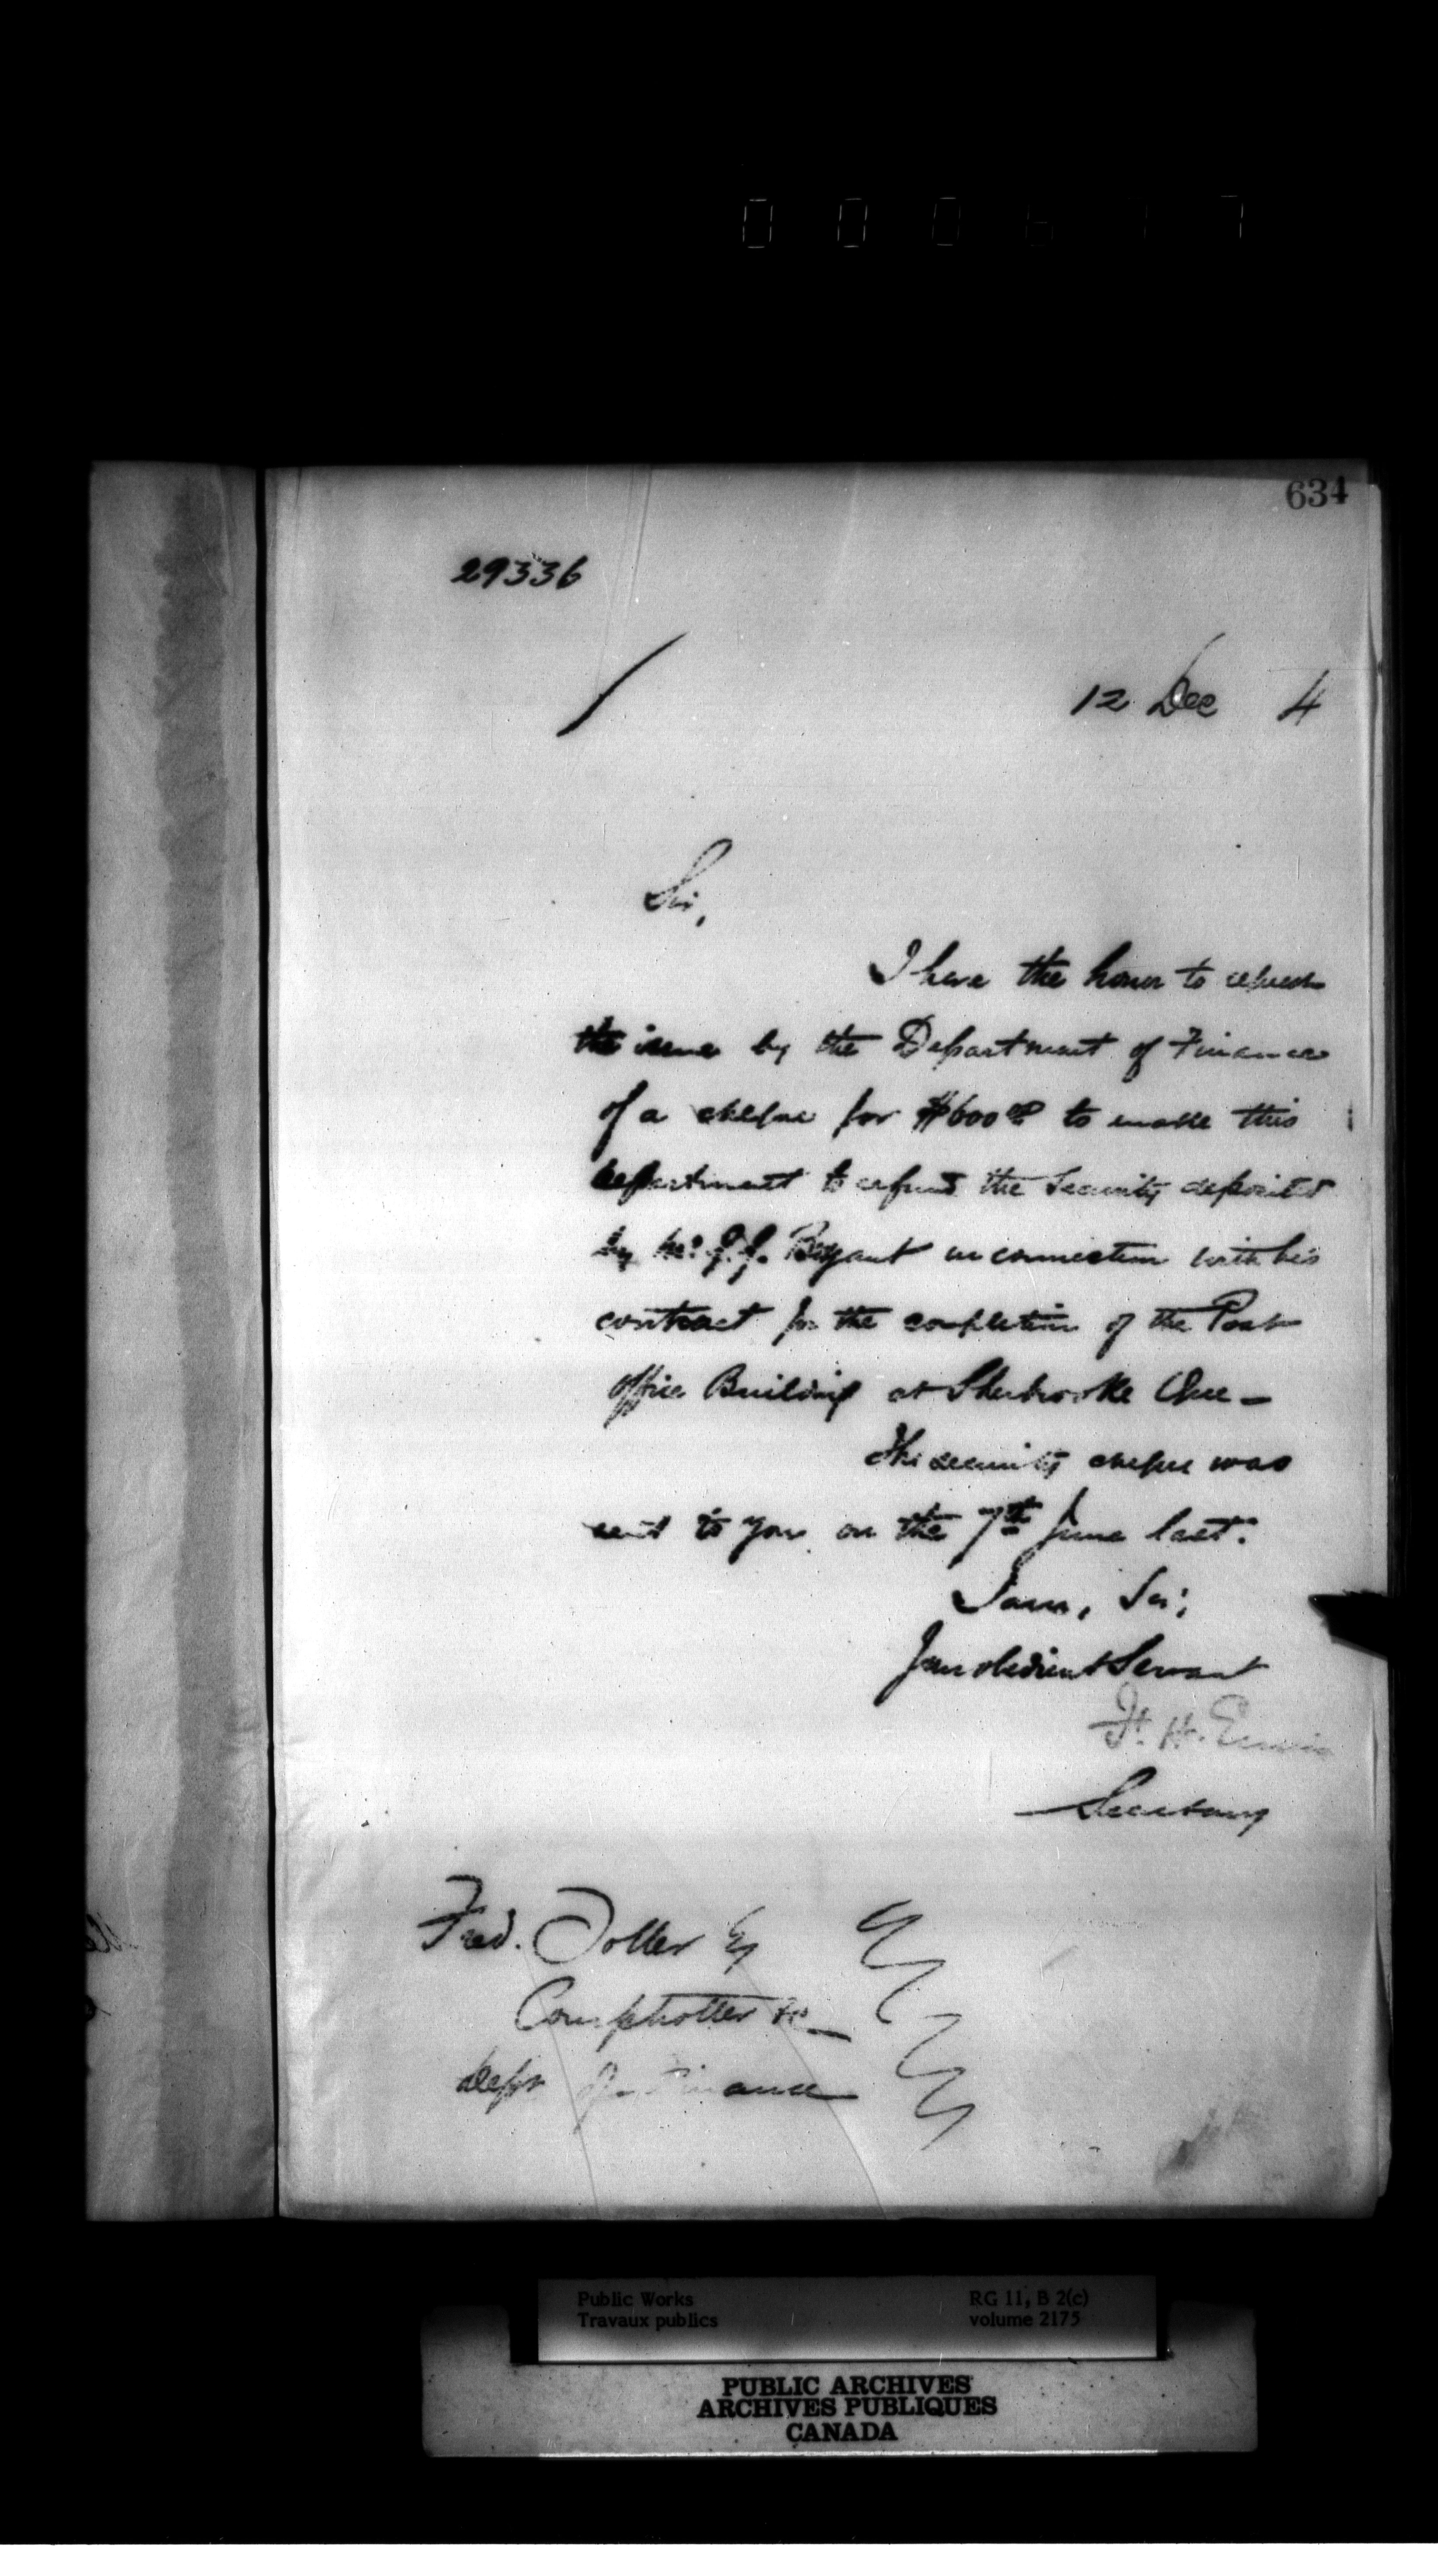 634
29336
12 Dec 4
Sir,
I have the honor to request
the issue by the Department of Finance
of a cheque for $600.00 to enable this
department to refund the Security deposited
by Mr. J. J. Bryant in connection with his
contract for the completion of the Post
office Building at Sherbrooke Que -
The security cheque was
sent to you on the 7th June last.
I am, Sir,
Your obedient Servant
F. H. Ennis
Secretary
Fred. Toller Esq
Comptroller &c
Dept of Finance
Public Works
Travaux publics
RG 11, B 2(c)
volume 2175
PUBLIC ARCHIVES
ARCHIVES PUBLIQUES
CANADA